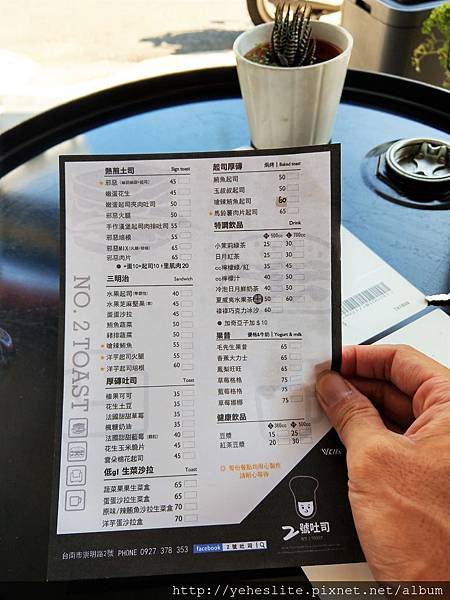 熱煎土司 Sign toast
邪惡 45
嫩蛋花生 45
嫩蛋起司夾肉吐司 50
邪惡火腿 50
手作漢堡起司肉排吐司 55
邪惡培根 55
邪惡 65
邪惡肉片 65
+蛋10+起司10+里肌肉20
三明治 Sandwich
水果起司 40
水果芝麻堅果 45
蛋蛋沙拉 50
鮪魚蔬菜 50
豬排蔬菜 50
嗆辣鮪魚 55
洋芋起司火腿 55
洋芋起司培根 60
厚磚吐司 Toast
榛果可可 35
花生土豆 35
法國甜甜草莓 35
楓糖奶油 35
法國甜甜藍莓 40
花生玉米脆片 45
雲朵棉花起司 45
低gl 生菜沙拉 Toast
蔬菜果果生菜盒 65
蛋蛋沙拉生菜盒 65
原味/辣鮪魚沙拉生菜盒 70
洋芋蛋沙拉盒 70
起司厚磚 焗烤 Baked toast
鮪魚起司 50
玉叔叔起司 50
嗆辣鮪魚起司 50 60
馬鈴薯肉片起司 65
特調飲品 Drink
500cc 700cc
小茉莉綠茶 25 30
日月紅茶 25 30
cc檸檬綠/紅 35 45
cc檸檬汁 35 45
冷泡日月鮮奶茶 40 50
夏威夷水果茶 50 60
祿祿巧克力冰沙 60
加奇亞子加$10
果昔 優格&牛奶 Yogurt & milk
毛先生果昔 65
香蕉大力士 65
鳳梨旺旺 65
草莓格格 75
藍莓格格 75
草莓娜娜 75
健康飲品
360cc 500cc
豆漿 15 25
紅茶豆漿 20 30
每份餐點均用心製作
請耐心等待
NO. 2 TOAST
2號吐司
NO. 2 TOAST
台南市崇明路2號 PHONE 0927 378 353 facebook 2號吐司
http://yeheslite.pixnet.net/album